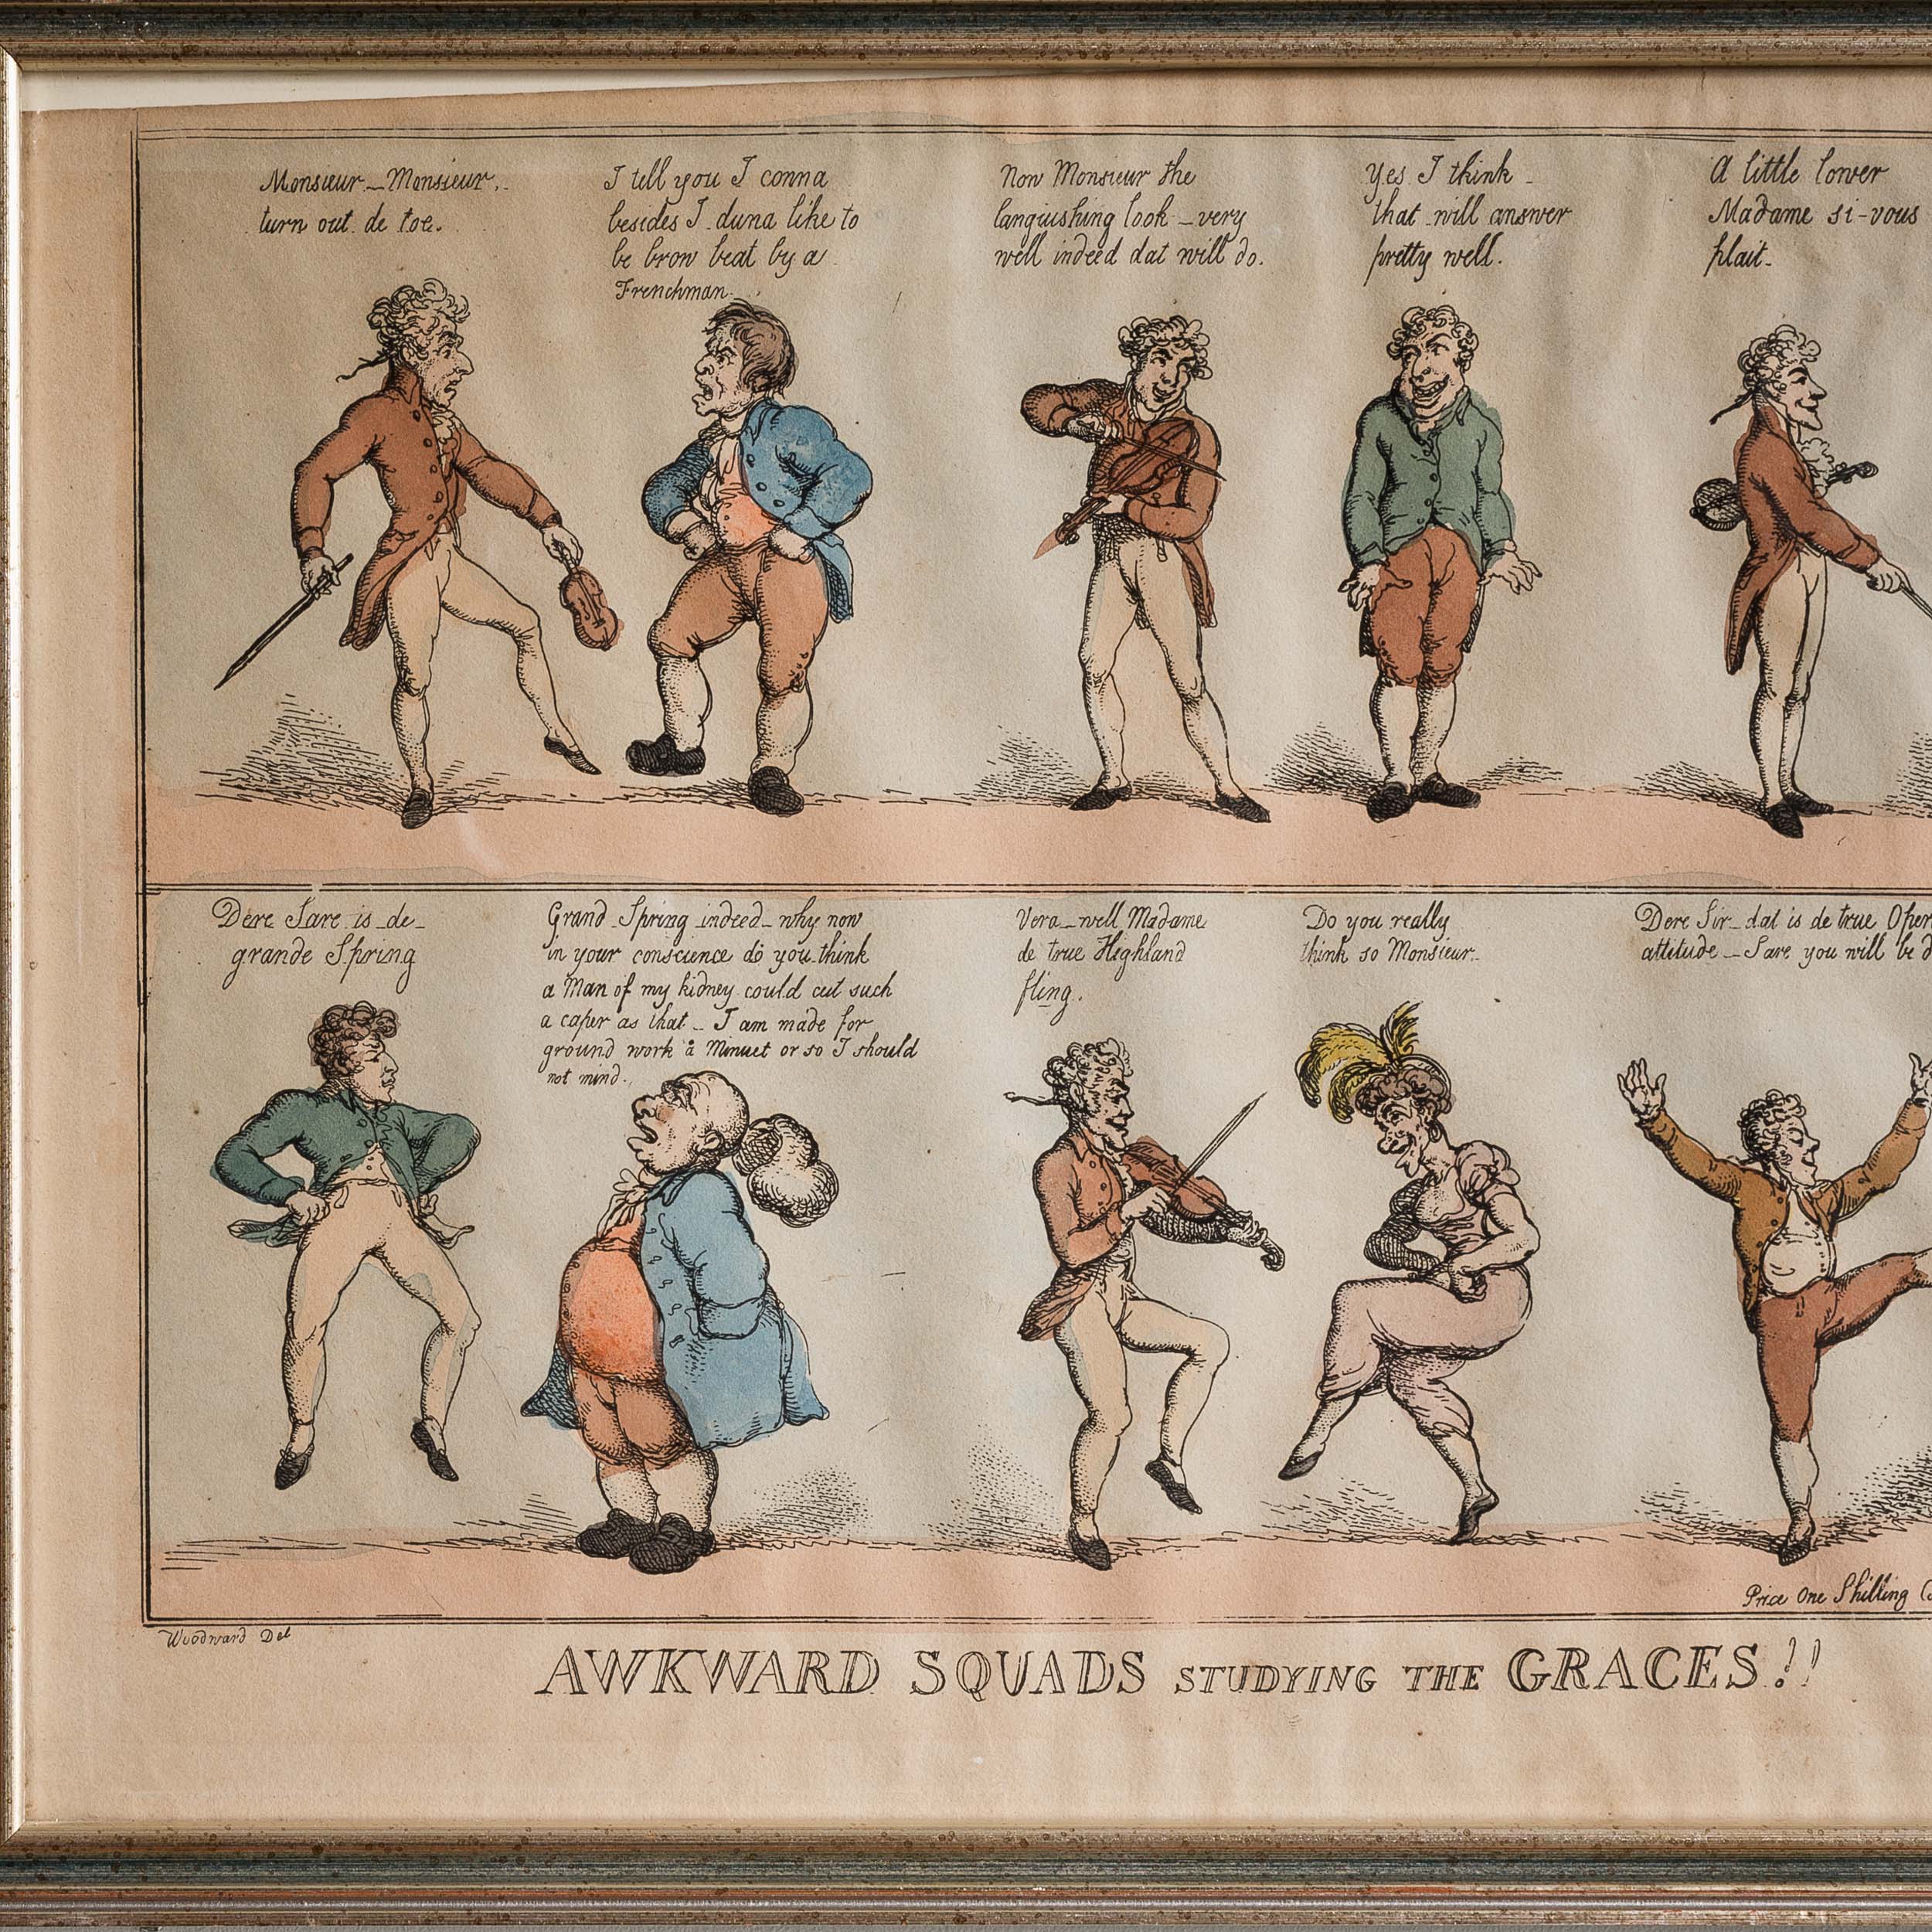 Monsieur – Monsieur,
turn out de toe.
I tell you I conna
besides I duna like to
be brow beat by a
Frenchman.
Now Monsieur the
languishing look – very
well indeed dat will do.
Yes I think
that will answer
pretty well.
A little lower
Madame si-vous
plait.
Dere Sare is de
grande Spring
Grand Spring indeed – why now
in your conscience do you think
a Man of my kidney could cut such
a caper as that – I am made for
ground work a Minuet or so I should
not mind.
Vera – well Madame
de true Highland
fling.
Do you really
think so Monsieur.
Dere Sir – dat is de true Oper
attitude – Sare you will be d
Price One Shilling Co
Woodward Del
AWKWARD SQUADS STUDYING THE GRACES!!